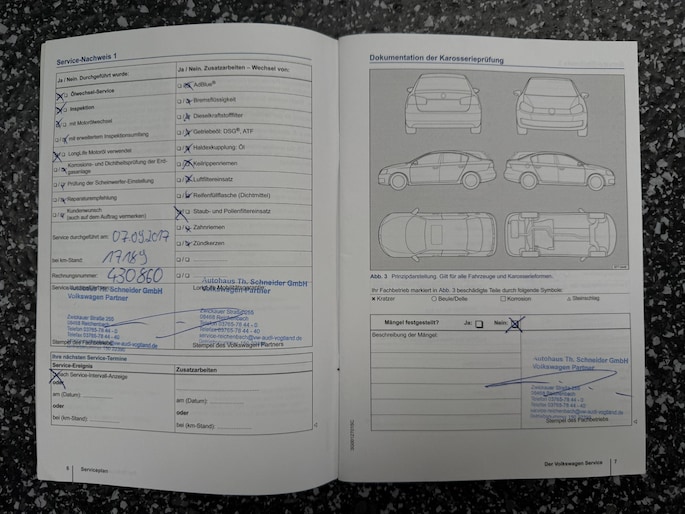 Service-Nachweis 1
Ja / Nein. Durchgeführt wurde:
Ölwechsel-Service
Inspektion
mit Motorölwechsel
mit erweitertem Inspektionsumfang
LongLife Motoröl verwendet
Korrosions- und Dichtheitsprüfung der Erd-
gasanlage
Prüfung der Scheinwerfer-Einstellung
Reparaturempfehlung
Kundenwunsch
(auch auf dem Auftrag vermerken)
Service durchgeführt am: 07.09.2017
bei km-Stand: 17189
Rechnungsnummer: 430860
Autohaus Th. Schneider GmbH
Volkswagen Partner
Zwickauer Straße 255
08468 Reichenbach
Telefon 03765-78 44 - 0
Telefax 03765-78 44 - 40
service-reichenbach@vw-audi-vogtland.de
Stempel des Fachbetriebs
Ja / Nein. Zusatzarbeiten – Wechsel von:
AdBlue®
Bremsflüssigkeit
Dieselkraftstofffilter
Getriebeöl: DSG®, ATF
Haldexkupplung: Öl
Keilrippenriemen
Luftfiltereinsatz
Reifenfüllflasche (Dichtmittel)
Staub- und Pollenfiltereinsatz
Zahnriemen
Zündkerzen
Autohaus Th. Schneider GmbH
Volkswagen Partner
Zwickauer Straße 255
08468 Reichenbach
Telefon 03765-78 44 - 0
Telefax 03765-78 44 - 40
service-reichenbach@vw-audi-vogtland.de
Stempel des Volkswagen Partners
Ihre nächsten Service-Termine
Service-Ereignis
Zusatzarbeiten
nach Service-Intervall-Anzeige
oder
am (Datum):
am (Datum):
oder
oder
bei (km-Stand):
bei (km-Stand):
6 Serviceplan
Dokumentation der Karosserieprüfung
Abb. 3 Prinzipdarstellung. Gilt für alle Fahrzeuge und Karosserieformen.
Ihr Fachbetrieb markiert in Abb. 3 beschädigte Teile durch folgende Symbole:
× Kratzer ○ Beule/Delle □ Korrosion △ Steinschlag
Mängel festgestellt? Ja: Nein:
Beschreibung der Mängel:
Autohaus Th. Schneider GmbH
Volkswagen Partner
Zwickauer Straße 255
08468 Reichenbach
Telefon 03765-78 44 - 0
Telefax 03765-78 44 - 40
service-reichenbach@vw-audi-vogtland.de
Stempel des Fachbetriebs
Der Volkswagen Service 7